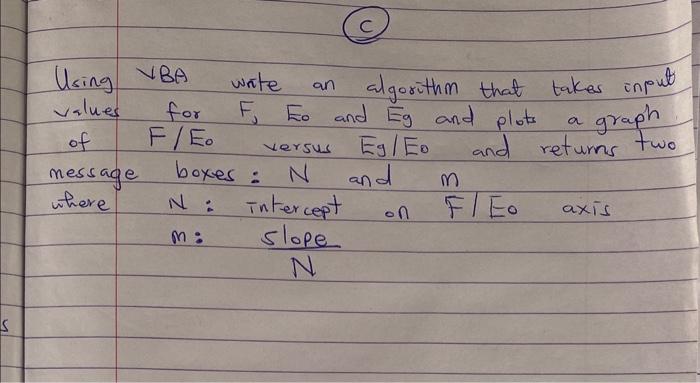 C
Using VBA write an algorithm that takes input
values for F, Eo and Eg and plots a graph
of F/Eo versus Eg/Eo and returns two
message boxes: N and m
where N: intercept on F/Eo axis
m: slope
N
s